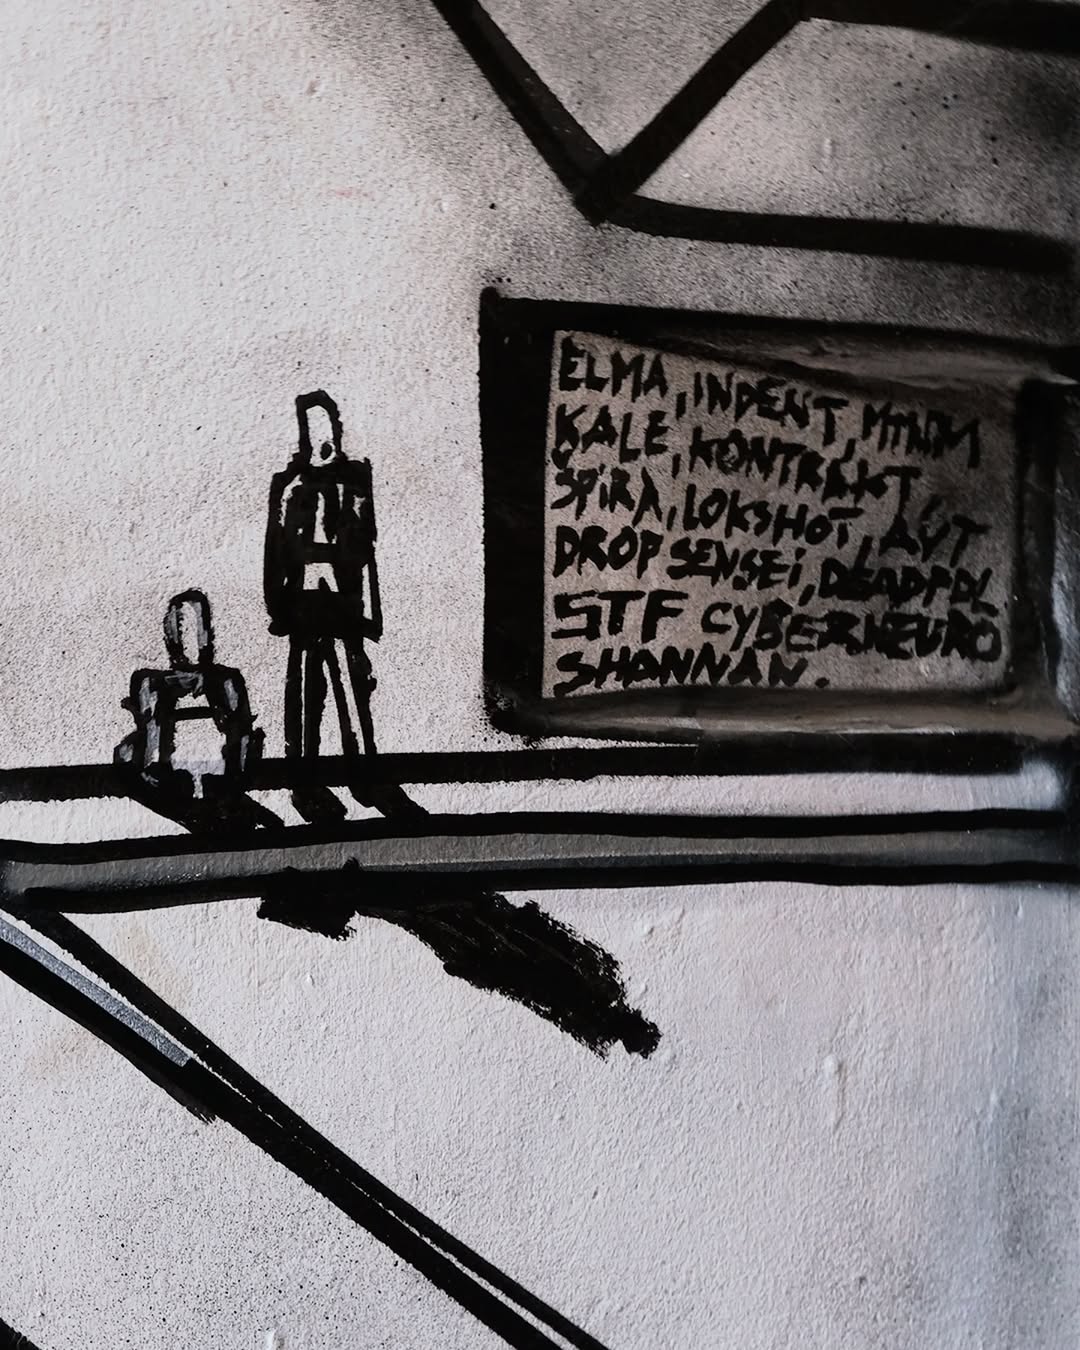 ELMA, INDENT, MTNM
KALE, KONTRAKT,
SPIRA, LOKSHOT, AUT
DROP SENSEI, DEADPOL
STF CYBERNEURO
SHANNAN.